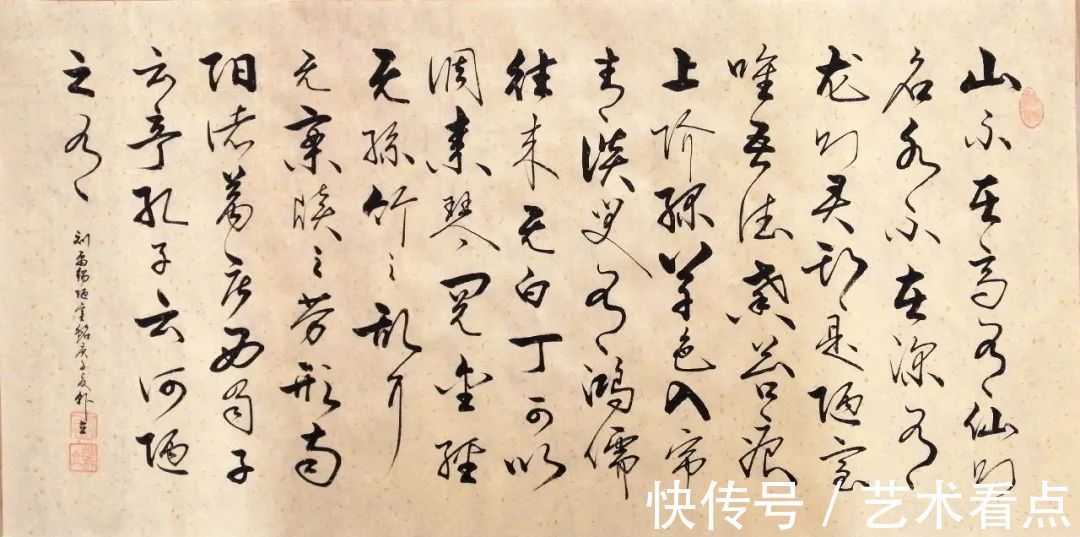 山不在高有仙则
名水不在深有
龙则灵斯是陋室
唯吾德馨苔痕
上阶绿草色入帘
青谈笑有鸿儒
往来无白丁可以
调素琴阅金经
无丝竹之乱耳
无案牍之劳形南
阳诸葛庐西蜀子
云亭孔子云何陋
之有
刘禹锡陋室铭庚子
快传号 / 艺术看点